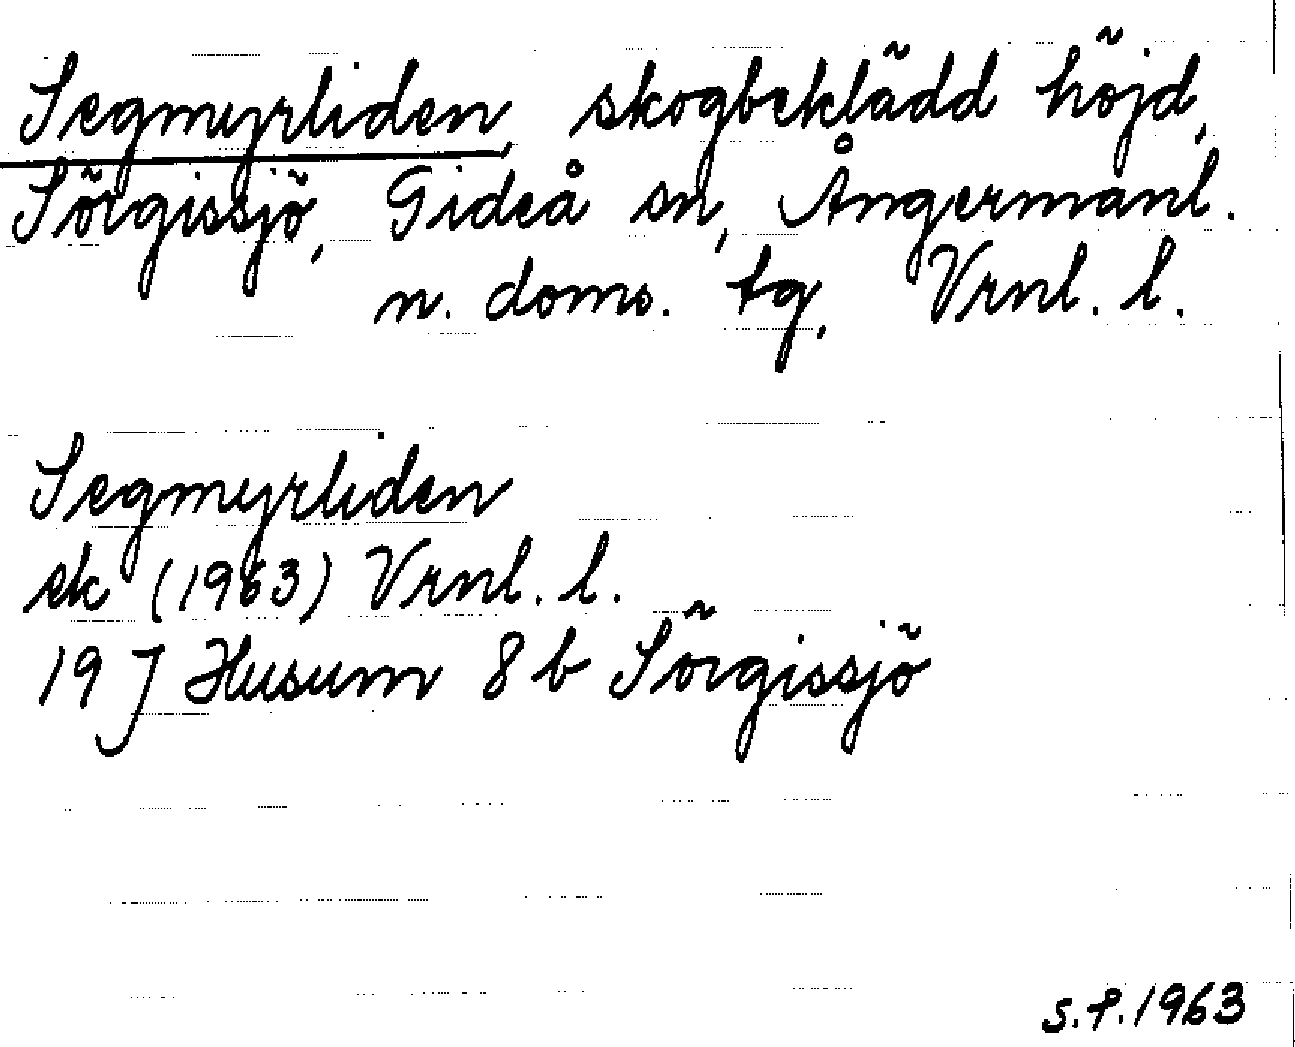 Segmyrliden, skogbeklädd höjd,
Sörgissjö, Gideå sn, Ångermanl.
n. doms. tg, Vrnl. l.
Segmyrliden
ek (1963) Vrnl. l.
19 J Husum 8 b Sörgissjö
S.P. 1963